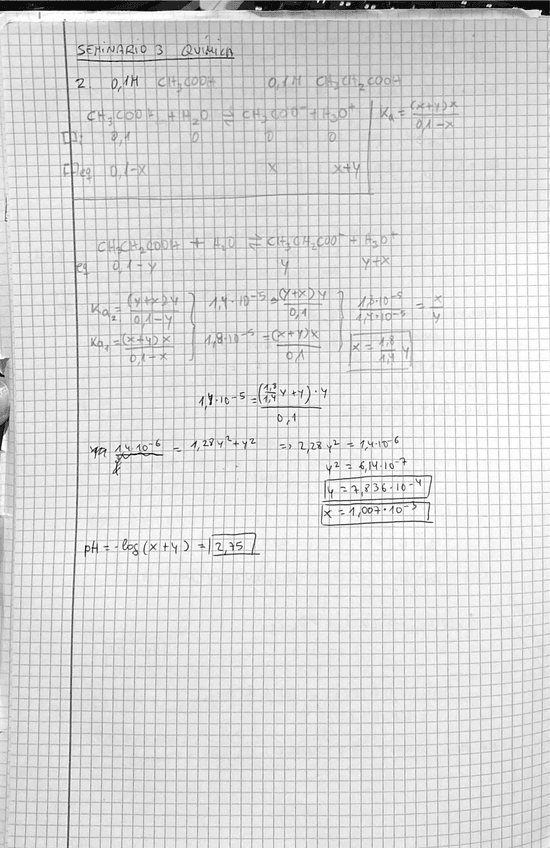 SEMINARIO 3 QUÍMICA
2. 0,1M CH₃COOH 0,1M CH₃CH₂COOH
CH₃COOH + H₂O ⇌ CH₃COO⁻ + H₃O⁺ Ka = (x+y)x / 0,1-x
[ ]i 0,1 0 0 0
[ ]eq 0,1-x x x+y
CH₃CH₂COOH + H₂O ⇌ CH₃CH₂COO⁻ + H₃O⁺
eq 0,1-y y y+x
Ka₂ = (y+x)y / 0,1-y } 1,4·10⁻⁵ = (y+x)y / 0,1 } 1,8·10⁻⁵ / 1,4·10⁻⁵ = x / y
Ka₁ = (x+y)x / 0,1-x 1,8·10⁻⁵ = (x+y)x / 0,1 x = 1,8 / 1,4 y
1,4·10⁻⁵ = (1,8 / 1,4 y + y)·y / 0,1
1,4·10⁻⁶ = 1,28y² + y² => 2,28y² = 1,4·10⁻⁶
y² = 6,14·10⁻⁷
y = 7,836·10⁻⁴
x = 1,007·10⁻³
pH = -log(x+y) = 2,75